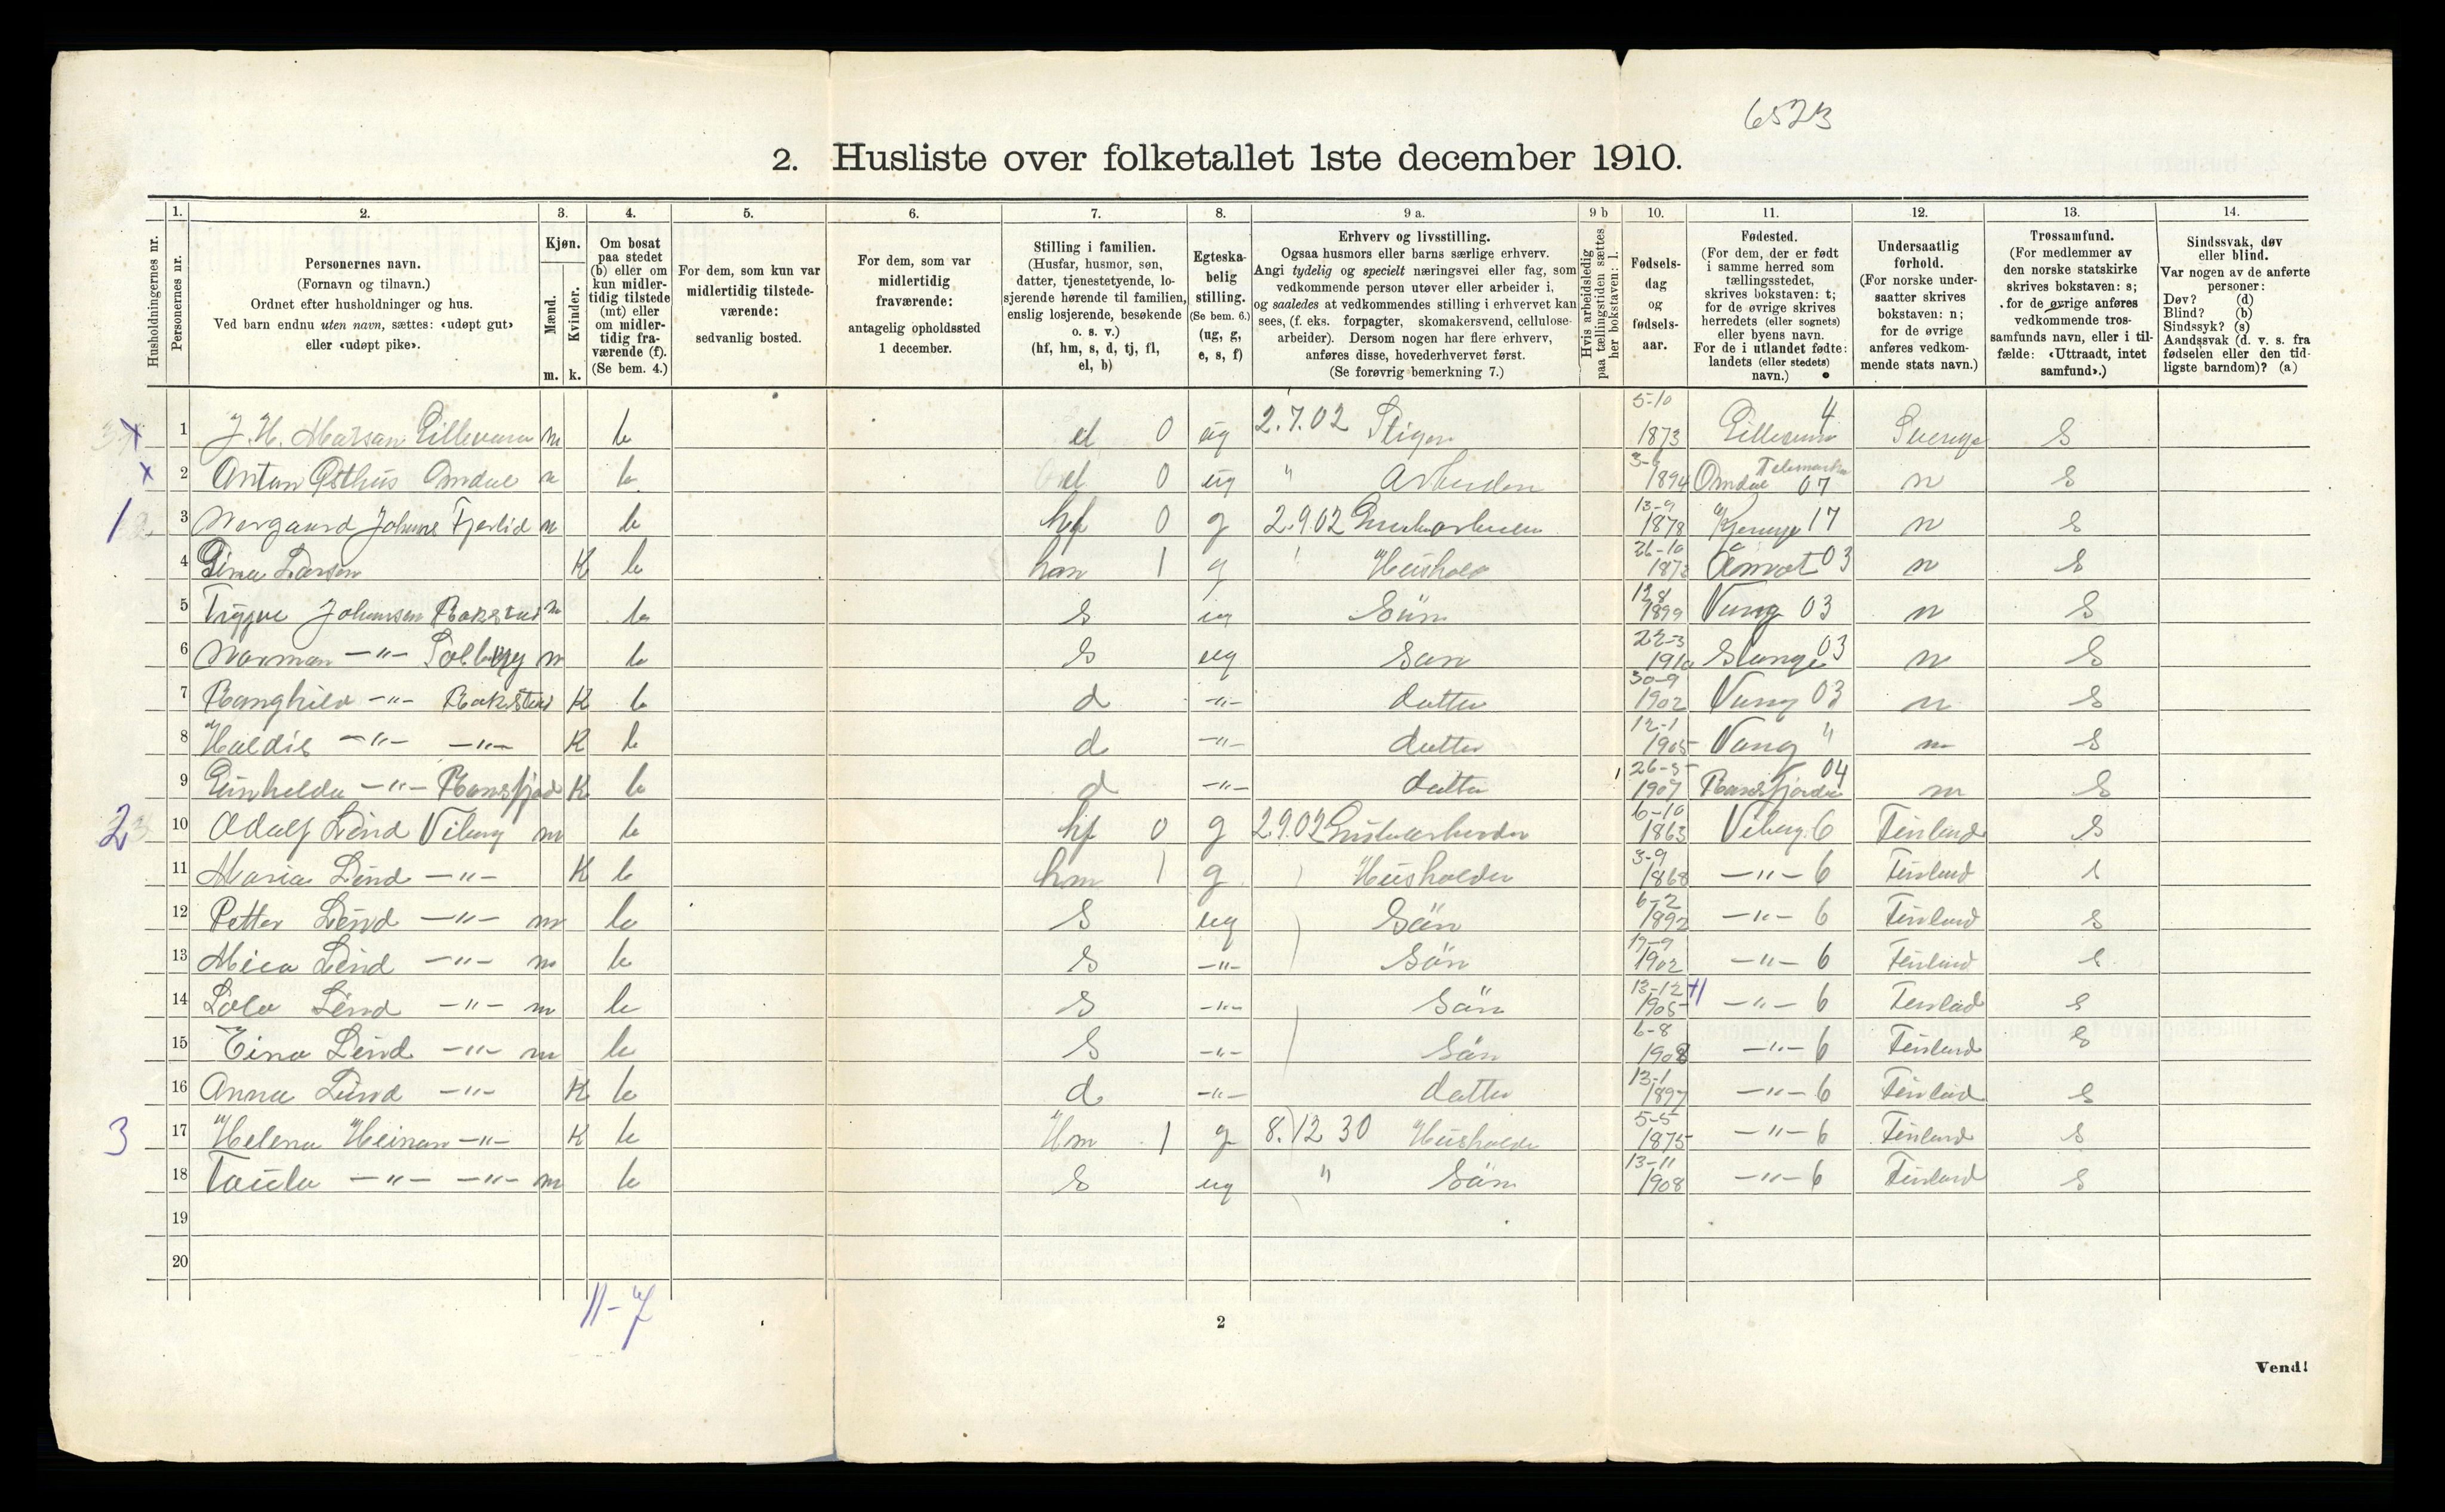 6523
2. Husliste over folketallet 1ste december 1910.
Husholdningernes nr.
1. Personernes nr.
2. Personernes navn.
(Fornavn og tilnavn.)
Ordnet efter husholdninger og hus.
Ved barn endnu uten navn, sættes: «udøpt gut»
eller «udøpt pike».
3. Kjøn.
Mænd. m.
Kvinder. k.
4. Om bosat
paa stedet
(b) eller om
kun midler-
tidig tilstede
(mt) eller
om midler-
tidig fra-
værende (f).
(Se bem. 4.)
5. For dem, som kun var
midlertidig tilstede-
værende:
sedvanlig bosted.
6. For dem, som var
midlertidig
fraværende:
antagelig opholdssted
1 december.
7. Stilling i familien.
(Husfar, husmor, søn,
datter, tjenestetyende, lo-
sjerende hørende til familien,
enslig losjerende, besøkende
o. s. v.)
(hf, hm, s, d, tj, fl,
el, b)
8. Egteska-
belig
stilling.
(Se bem. 6.)
(ug, g,
e, s, f)
9 a. Erhverv og livsstilling.
Ogsaa husmors eller barns særlige erhverv.
Angi tydelig og specielt næringsvei eller fag, som
vedkommende person utøver eller arbeider i,
og saaledes at vedkommendes stilling i erhvervet kan
sees, (f. eks. forpagter, skomakersvend, cellulose-
arbeider). Dersom nogen har flere erhverv,
anføres disse, hovederhvervet først.
(Se forøvrig bemerkning 7.)
9 b Hvis arbeidsledig
paa tællingstiden sættes
her bokstaven: l.
10. Fødsels-
dag
og
fødsels-
aar.
11. Fødested.
(For dem, der er født
i samme herred som
tællingsstedet,
skrives bokstaven: t;
for de øvrige skrives
herredets (eller sognets)
eller byens navn.
For de i utlandet fødte:
landets (eller stedets)
navn.)
12. Undersaatlig
forhold.
(For norske under-
saatter skrives
bokstaven: n;
for de øvrige
anføres vedkom-
mende stats navn.)
13. Trossamfund.
(For medlemmer av
den norske statskirke
skrives bokstaven: s;
for de øvrige anføres
vedkommende tros-
samfunds navn, eller i til-
fælde: «Uttraadt, intet
samfund».)
14. Sindssvak, døv
eller blind.
Var nogen av de anførte
personer:
Døv? (d)
Blind? (b)
Sindssyk? (s)
Aandssvak (d. v. s. fra
fødselen eller den tid-
ligste barndom)? (a)
x 1 J. H. m b el 0 ug 2.7.02 Stiger 5-10 1873 4 Sverige s
x 2 Anton Omdal m b el 0 ug " 1894 Omdal Telemarken 07 n s
1 3 m b hf 0 g 2.9.02 13-9 1878 17 n s
4 Larsen K b hm 1 g 26-10 03 n s
5 Johansen Bakstad m b s ug Sön 1899 Vang 03 n s
6 -"- m b s ug Sön 22-3 1910 Stange 03 n s
7 Ranghild -"- Bakstad K b d -"- datter 30-9 1902 Vang 03 n s
8 -"- -"- K b d -"- datter 12-1 1905 Vang " n s
9 -"- K b d -"- datter 1907 04 n s
2 10 Adolf Lind Viborg m b hf 0 g 2.9.02 6-10 1863 Viborg 6 Finland s
11 Maria Lind -"- K b hm 1 g Husholder 3-9 1868 -"- 6 Finland s
12 Petter Lind -"- m b s ug Sön 6-2 1892 -"- 6 Finland s
13 Lind -"- m b s -"- Sön 1902 -"- 6 Finland s
14 Lind -"- m b s -"- Sön 13-12 1905 -"- 6 Finland s
15 Lind -"- m b s -"- Sön 6-8 1908 -"- 6 Finland s
16 Anna Lind -"- K b d -"- datter 13-1 1897 -"- 6 Finland s
3 17 Helena Heinan -"- K b Hm 1 g 8.12 30 Husholder 5-5 1875 -"- 6 Finland s
18 -"- -"- m b s ug " Sön 13-11 1908 -"- 6 Finland s
19
20
11-7
2
Vend!